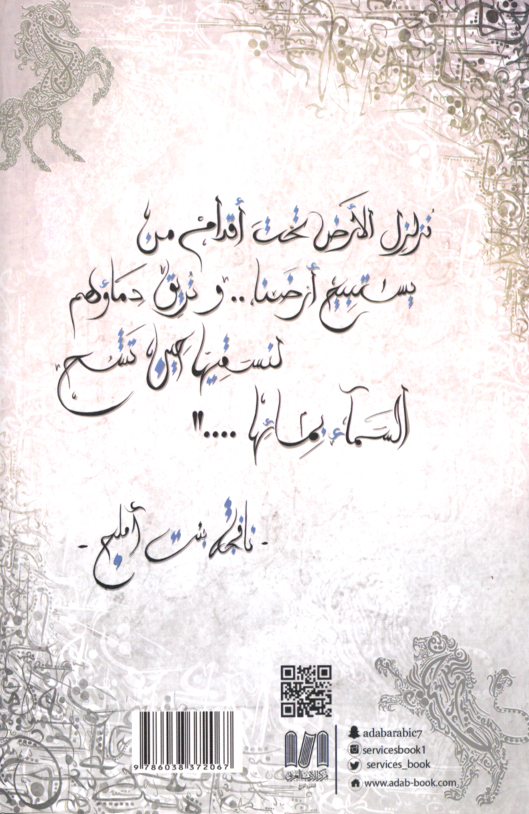 نُزلزل الأرَض تَحتَ أقدام من
يستبيح أرضَنا .. و نُريق دِمَاؤهم
لنسقيِهَا حين تَشُح
السَمآء بِمَائِها ...."
- نافجة بنت أملج -
adabarabic7
servicesbook1
services_book
www.adab-book.com
مركز الأدب العربي
9 786038 372067